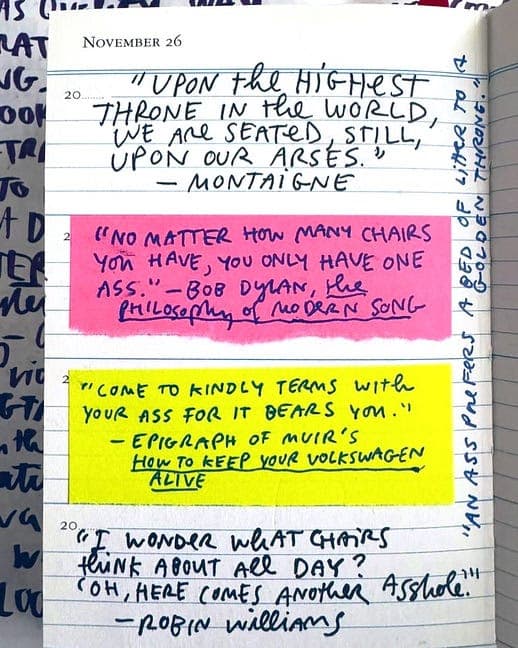 NOVEMBER 26
20
"UPON the HIGHEST
THRONE IN the WORLD,
WE ARE SEATED, STILL,
UPON OUR ARSES."
— MONTAIGNE
2
"NO MATTER HOW MANY CHAIRS
YOU HAVE, YOU ONLY HAVE ONE
ASS." — BOB DYLAN, the
PHILOSOPHY of MODERN SONG
2
"COME TO KINDLY TERMS with
YOUR ASS FOR IT BEARS YOU."
— EPIGRAPH OF MUIR'S
HOW TO KEEP YOUR VOLKSWAGEN
ALIVE
20
"I WONDER WHAT CHAIRS
thINK ABOUT ALL DAY?
'OH, HERE COMES ANOTHER Asshole.'"
— ROBIN WILLIAMS
"AN ASS PREFERS A BED OF LITTER TO A
GOLDEN THRONE."